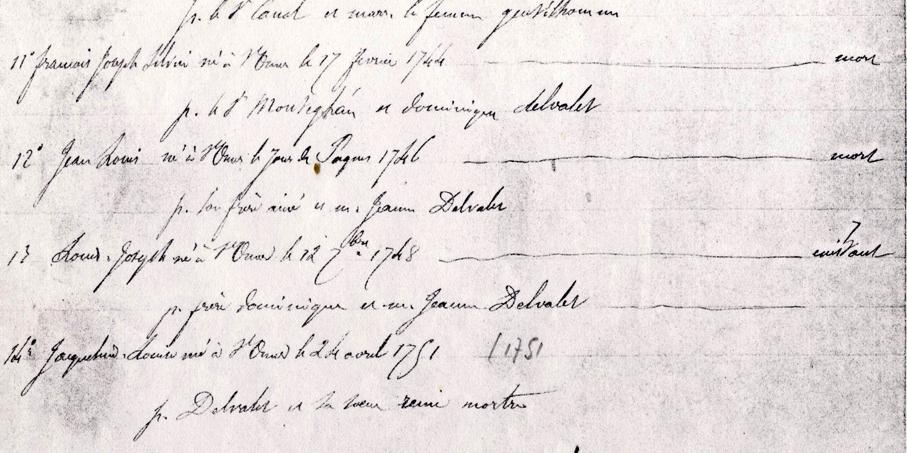 p. le Sr et mar. la femme gentilhomme
11° francois Joseph né à St Omer le 17 fevrier 1744 mort
p. le Sr et dominique delvalet
12° Jean Louis né à St Omer le Jour de Paques 1746 mort
p. son frère ainé et m. Jeanne Delvalet
13 Louis-Joseph né à St Omer le 12 7bre 1748 existant
p. frère dominique et m. Jeanne Delvalet
14° Louise né à St Omer le 24 avril 1751 /1751
p. Delvalet et sa soeur